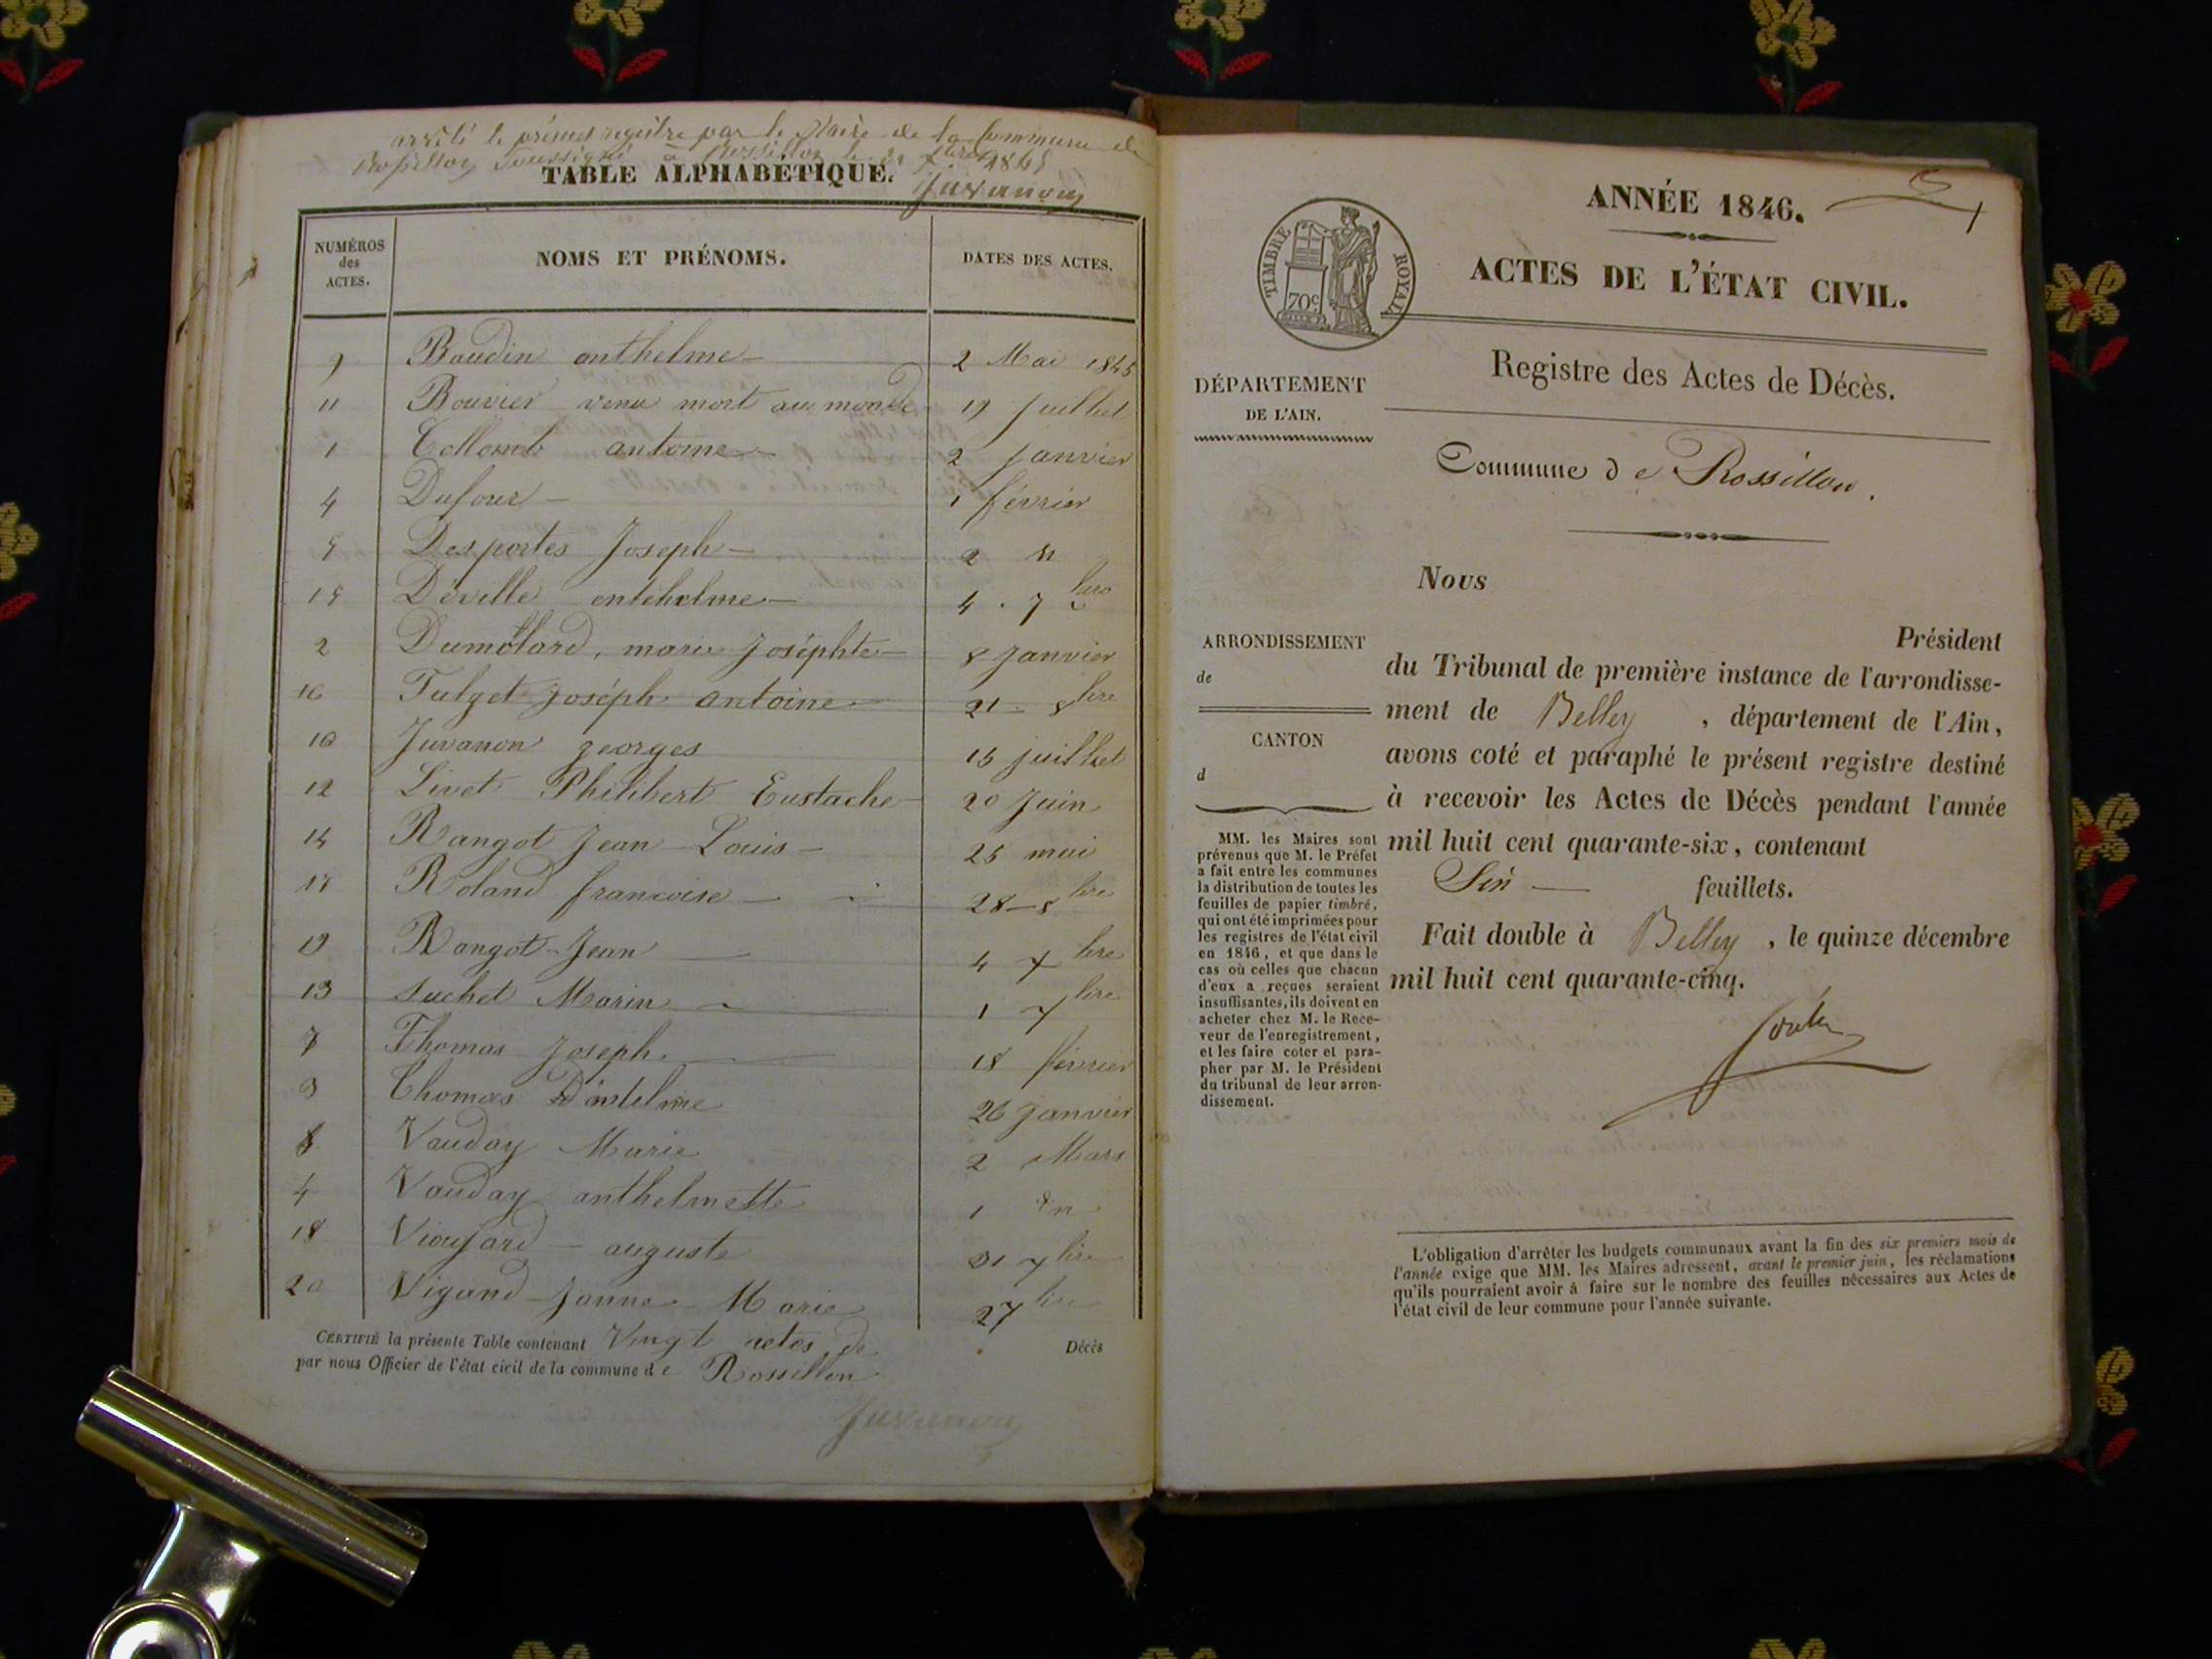 arrêté le présent registre par le Maire de la Commune de
Rossillon Soussigné à Rossillon le 31 1845
TABLE ALPHABÉTIQUE.
Juvanon
NUMÉROS des ACTES.
NOMS ET PRÉNOMS.
DATES DES ACTES.
9 Baudin anthelme 2 Mai 1845
11 Bouvier venu mort au monde 19 Juillet
1 Collomb antoine 2 Janvier
4 Dufour 1 février
5 Desportes Joseph 2 "
15 Déville 4 . 7
2 Dumolard, marie Joséphte 8 Janvier
16 Tulget Joséph antoine 21 - 8bre
10 Juvanon georges 15 juillet
12 Livet Philibert Eustache 20 Juin
14 Rangot Jean Louis 25 mai
17 Roland francoise 28 - 8bre
19 Rangot Jean 4 bre
13 Suchet Marin 1 7bre
7 Thomas Joseph 18 février
3 Thomas 26 Janvier
8 Vauday Marie 2 Mars
4 Vauday anthelmette 1
18 auguste 31 bre
20 Vigand Janne Marie 27 bre
CERTIFIÉ la présente Table contenant Vingt actes de Décès
par nous Officier de l'état civil de la commune de Rossillon
Juvanon
ANNÉE 1846.
1
TIMBRE ROYAL
70c
ACTES DE L'ÉTAT CIVIL.
Registre des Actes de Décès.
DÉPARTEMENT
DE L'AIN.
Commune de Rossillon.
Nous
Président
ARRONDISSEMENT
de
CANTON
d
du Tribunal de première instance de l'arrondisse-
ment de Belley, département de l'Ain,
avons coté et paraphé le présent registre destiné
à recevoir les Actes de Décès pendant l'année
mil huit cent quarante-six, contenant
feuillets.
Fait double à Belley, le quinze décembre
mil huit cent quarante-cinq.
MM. les Maires sont
prévenus que M. le Préfet
a fait entre les communes
la distribution de toutes les
feuilles de papier timbré,
qui ont été imprimées pour
les registres de l'état civil
en 1846, et que dans le
cas où celles que chacun
d'eux a reçues seraient
insuffisantes, ils doivent en
acheter chez M. le Rece-
veur de l'enregistrement,
et les faire coter et para-
pher par M. le Président
du tribunal de leur arron-
dissement.
L'obligation d'arrêter les budgets communaux avant la fin des six premiers mois de
l'année exige que MM. les Maires adressent, avant le premier juin, les réclamations
qu'ils pourraient avoir à faire sur le nombre des feuilles nécessaires aux Actes de
l'état civil de leur commune pour l'année suivante.